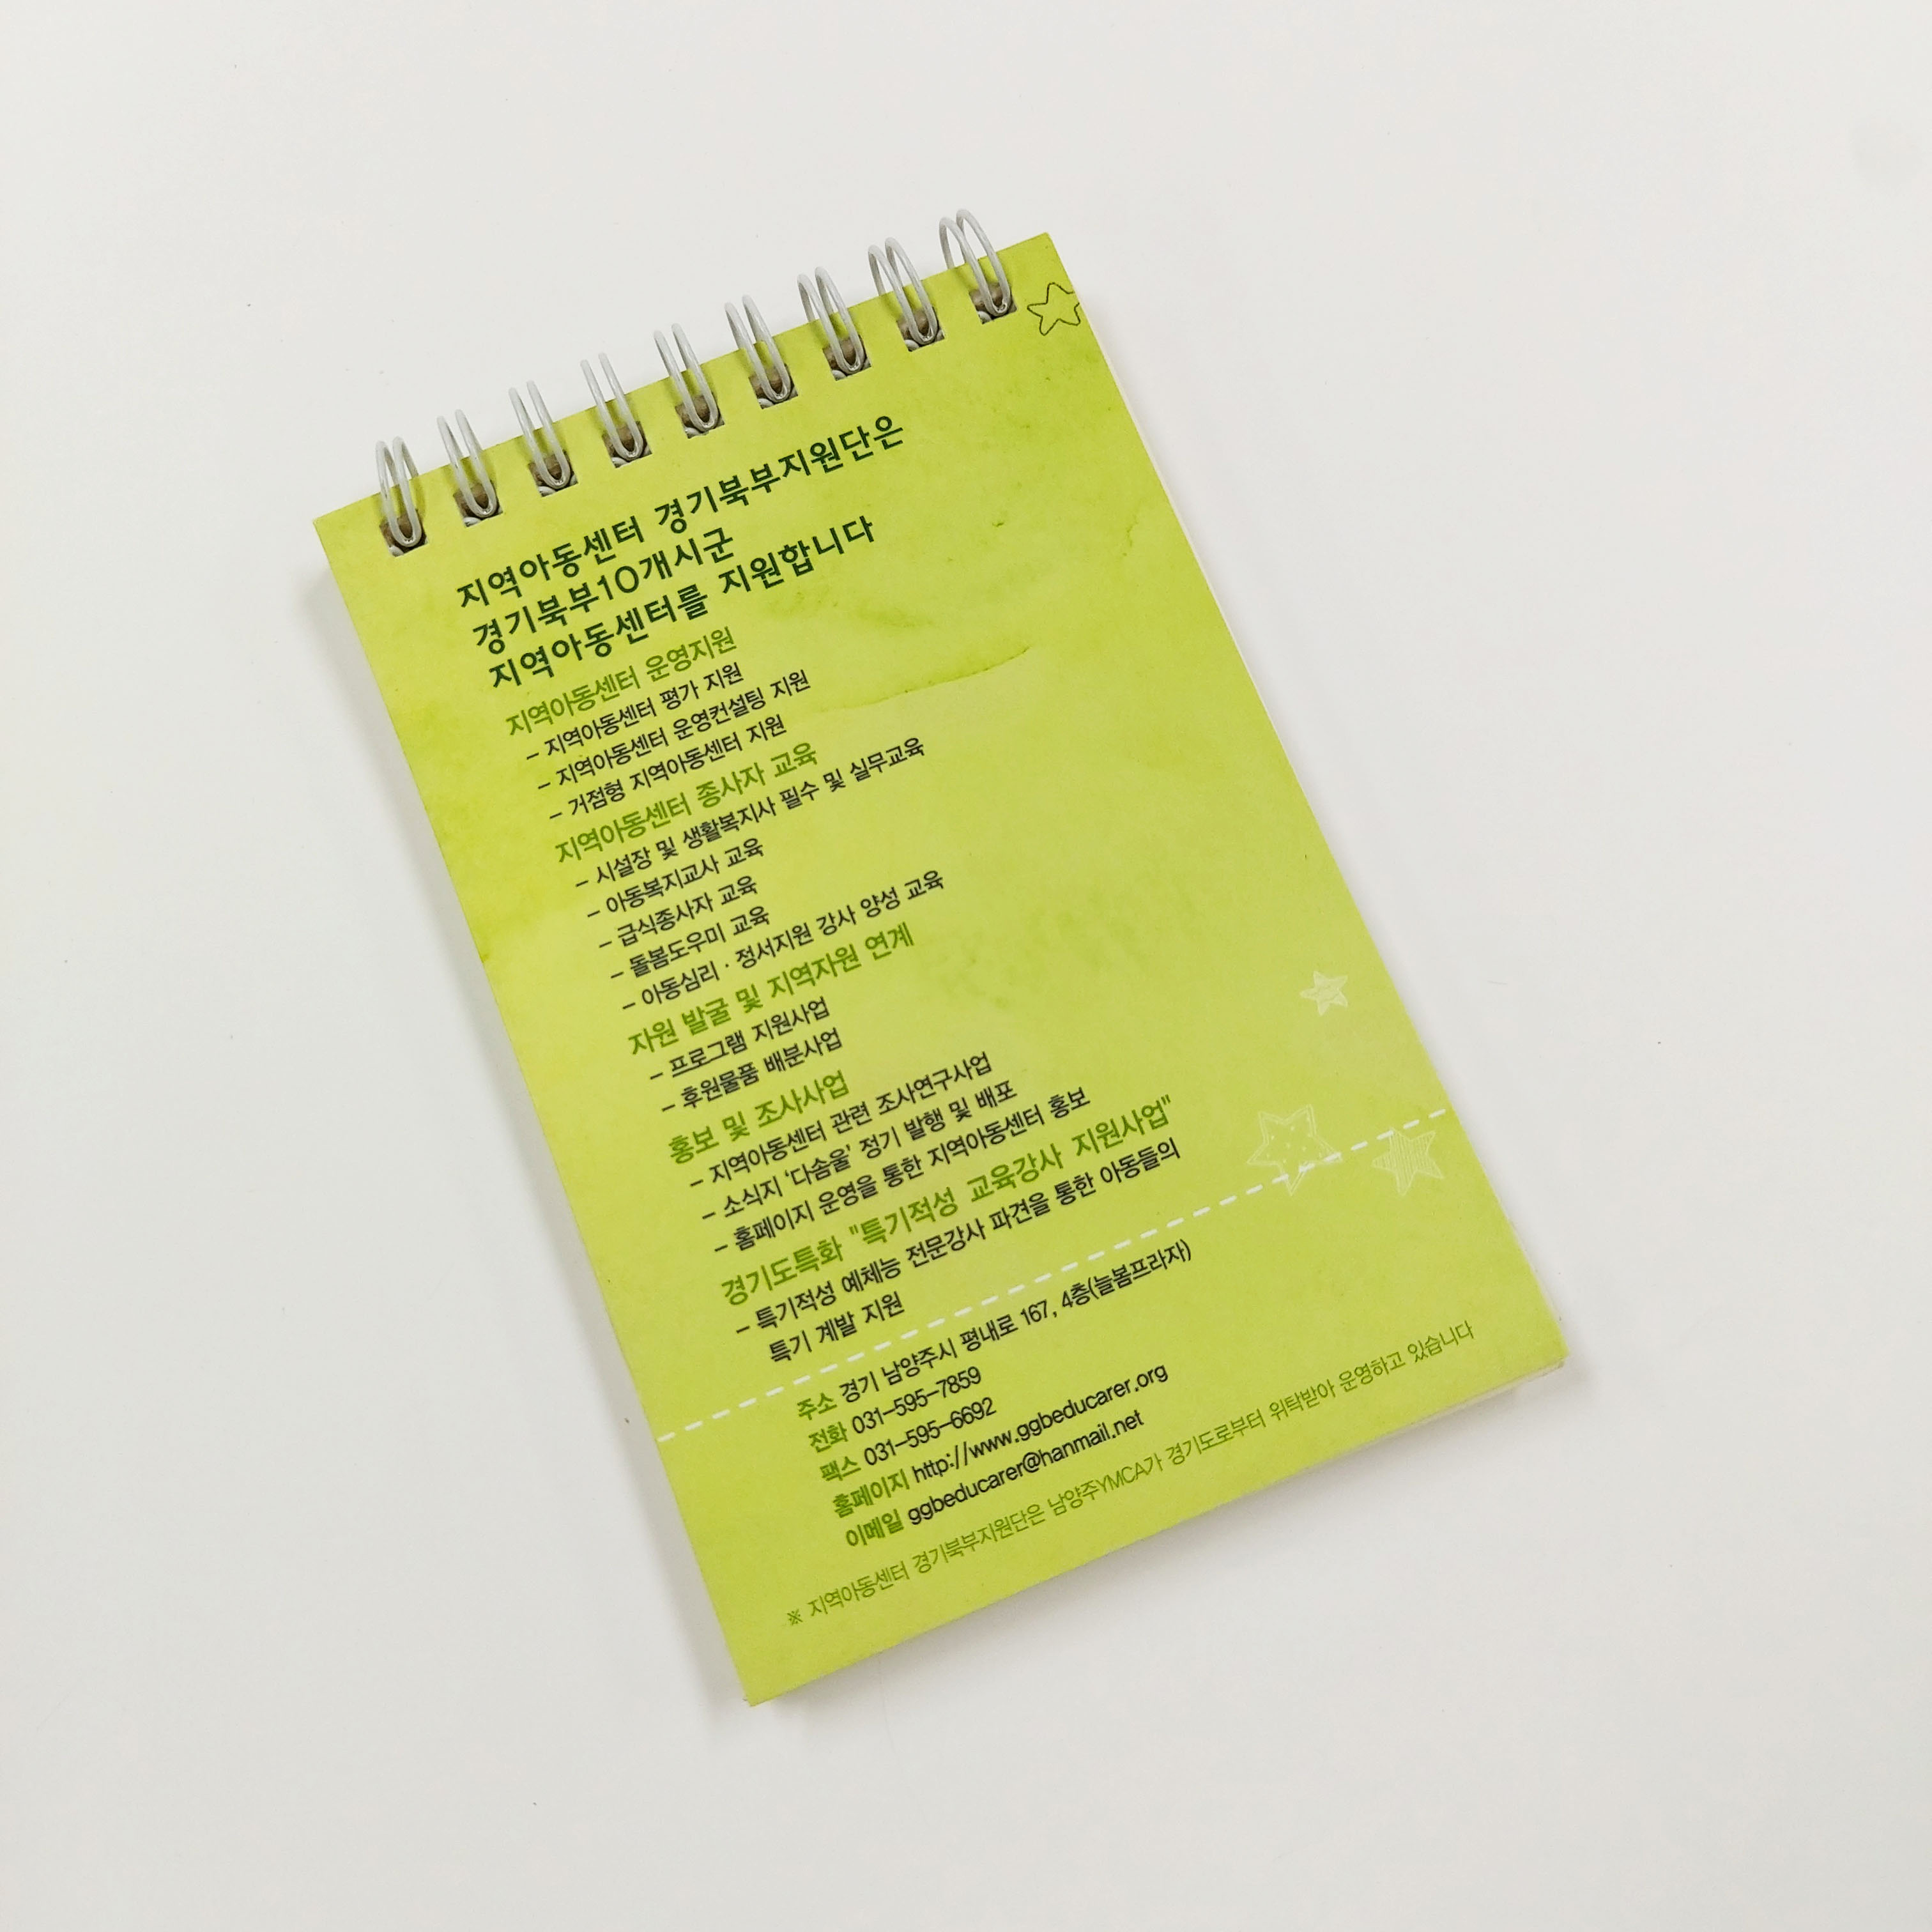 지역아동센터 경기북부지원단은
경기북부10개시군
지역아동센터를 지원합니다
지역아동센터 운영지원
– 지역아동센터 평가 지원
– 지역아동센터 운영컨설팅 지원
– 거점형 지역아동센터 지원
지역아동센터 종사자 교육
– 시설장 및 생활복지사 필수 및 실무교육
– 아동복지교사 교육
– 급식종사자 교육
– 돌봄도우미 교육
– 아동심리 · 정서지원 강사 양성 교육
자원 발굴 및 지역자원 연계
– 프로그램 지원사업
– 후원물품 배분사업
홍보 및 조사사업
– 지역아동센터 관련 조사연구사업
– 소식지 ‘다솜울’ 정기 발행 및 배포
– 홈페이지 운영을 통한 지역아동센터 홍보
경기도특화 "특기적성 교육강사 지원사업"
– 특기적성 예체능 전문강사 파견을 통한 아동들의
특기 계발 지원
주소 경기 남양주시 평내로 167, 4층(늘봄프라자)
전화 031–595–7859
팩스 031–595–6692
홈페이지 http://www.ggbeducarer.org
이메일 ggbeducarer@hanmail.net
※ 지역아동센터 경기북부지원단은 남양주YMCA가 경기도로부터 위탁받아 운영하고 있습니다